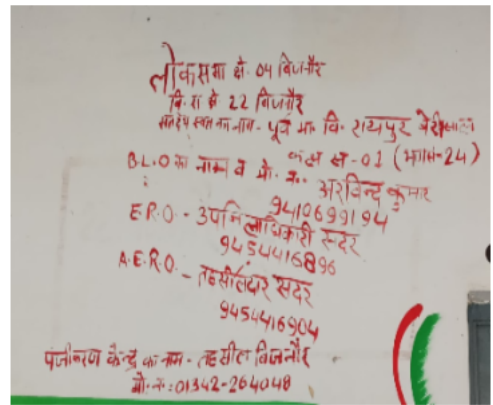 लोकसभा क्षे. 04 बिजनौर
वि. स क्षे 22 बिजनौर
मतदेय स्थल का नाम - पूर्व मा. वि. रायपुर बेरीसाल
कक्ष सं-01 (भाग-24)
B.L.O का नाम व मो. न. अरविन्द कुमार
9410699194
E.R.O. - उपजिलाधिकारी सदर
9454416896
A.E.R.O. - तहसीलदार सदर
9454416904
पंजीकरण केन्द्र का नाम - तहसील बिजनौर
मो. न.: 01342-264048